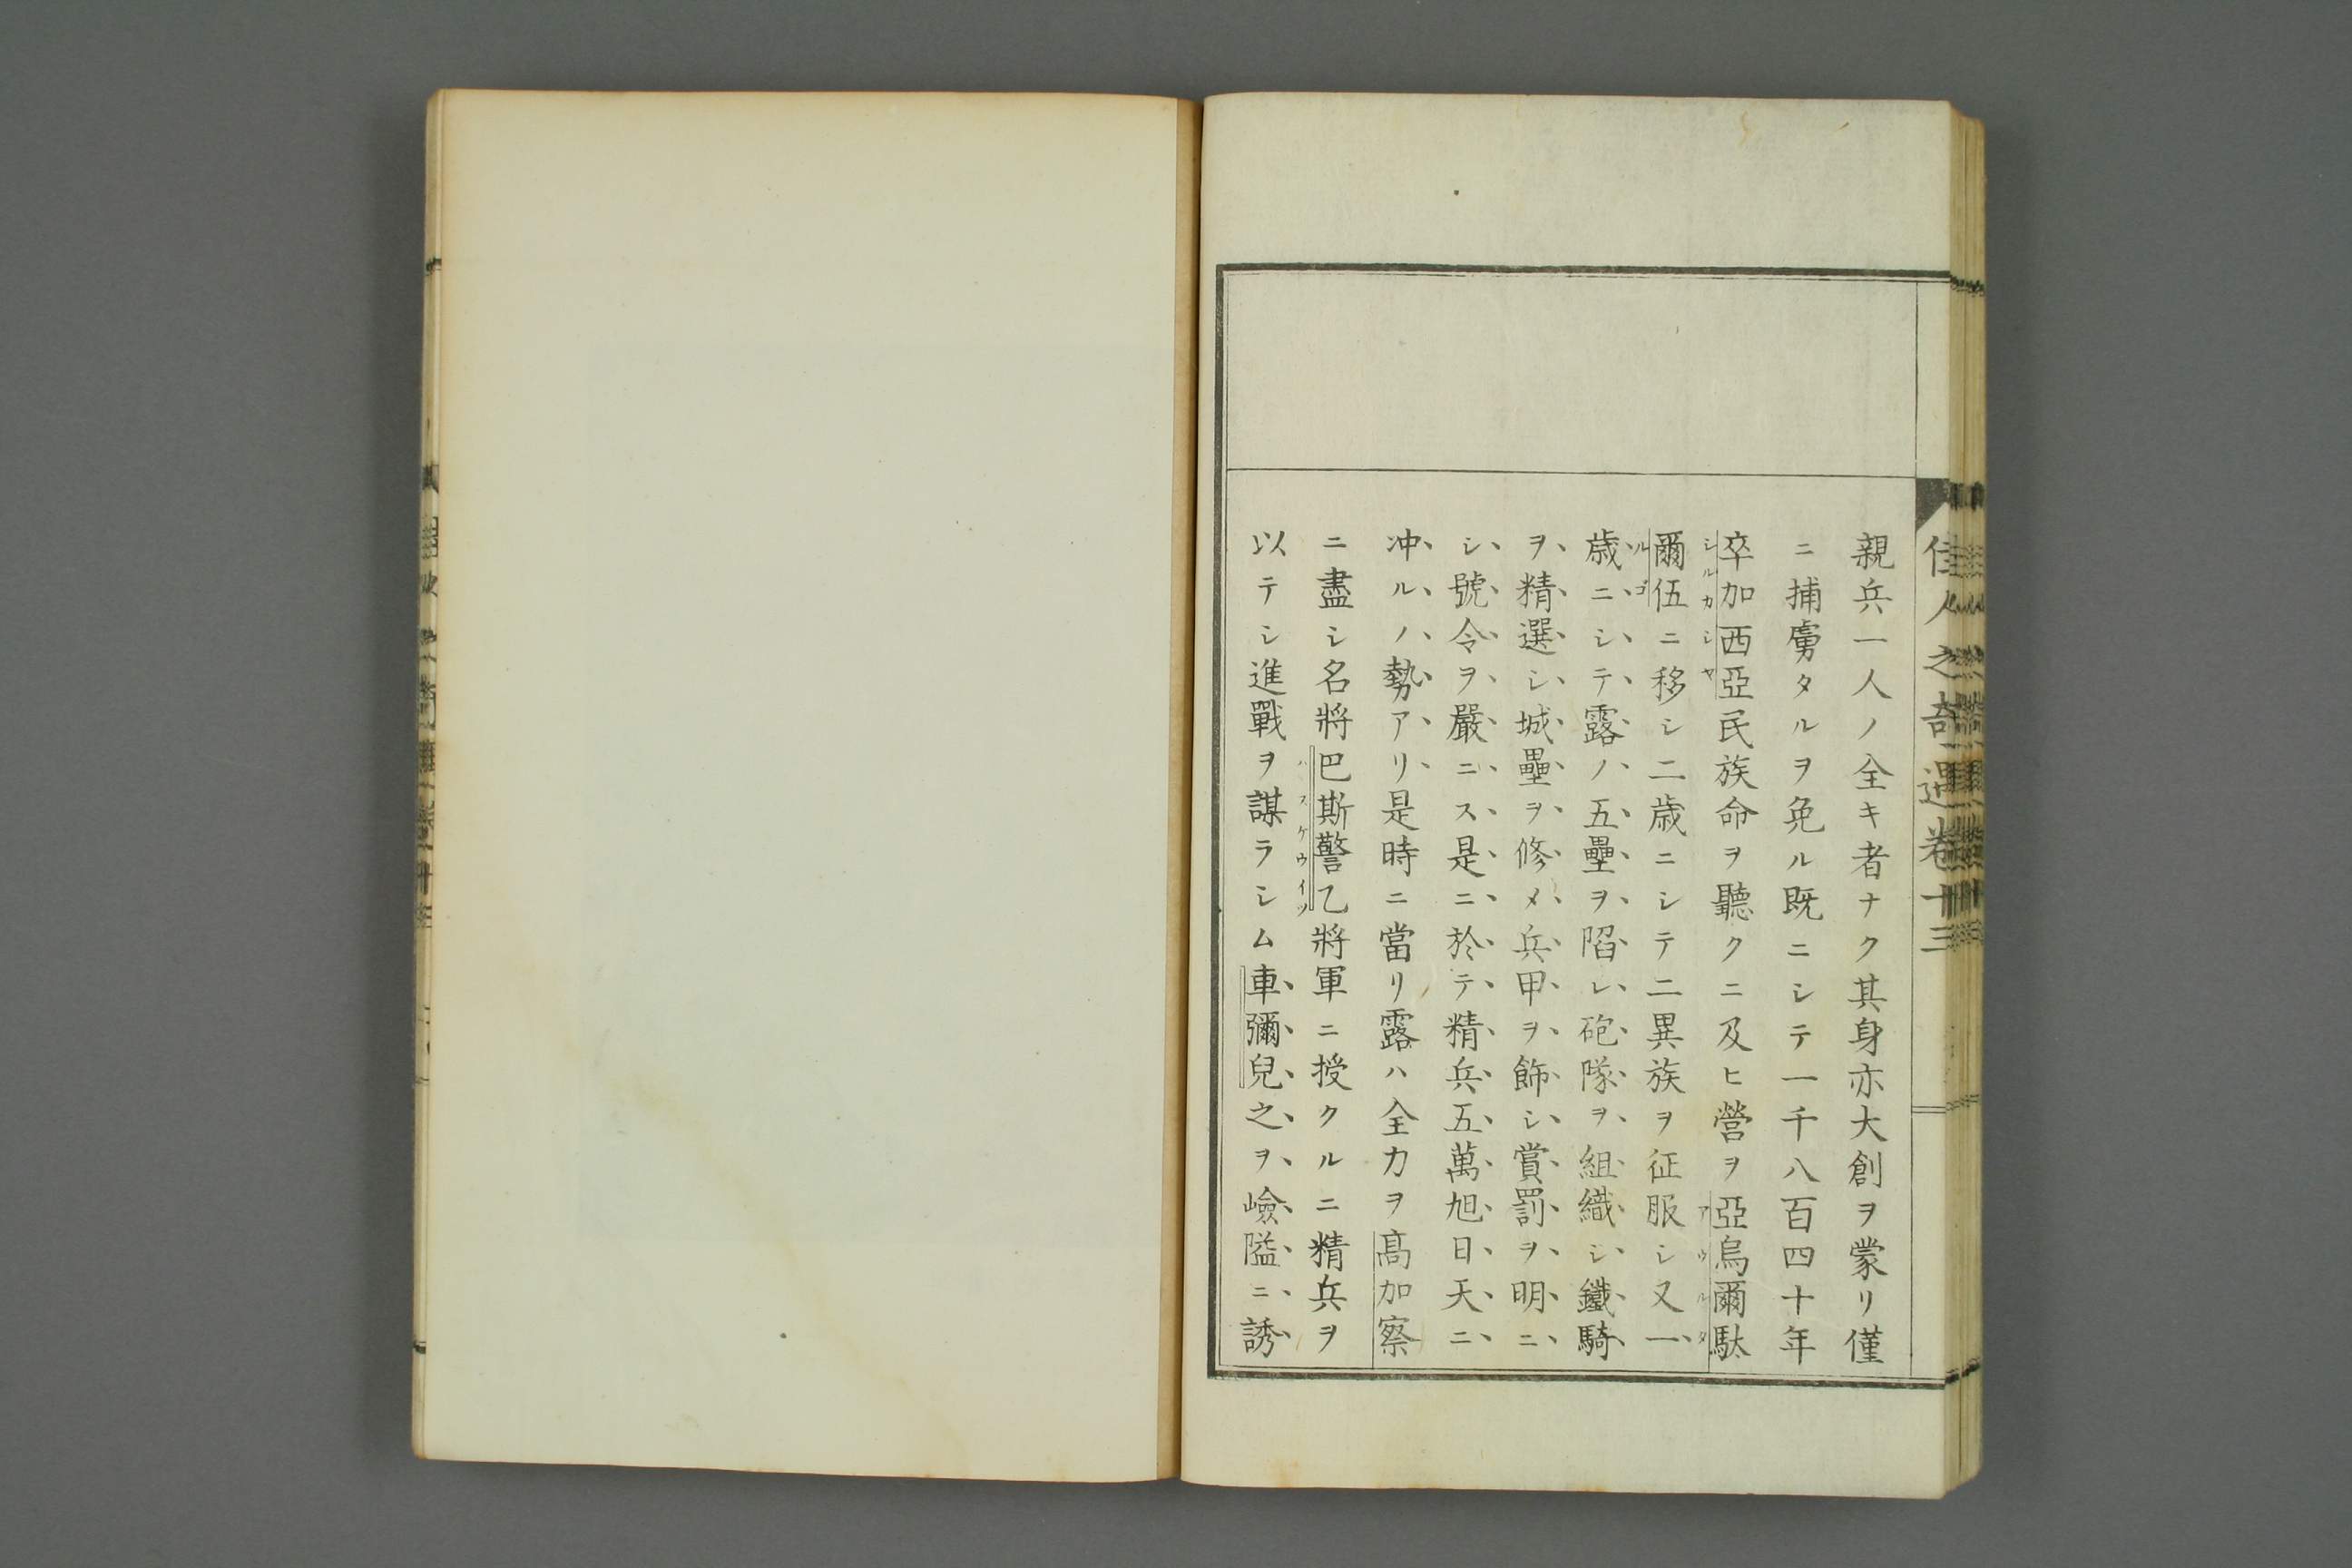 佳人之奇遇卷十三
親兵一人ノ全キ者ナク其身亦大創ヲ蒙リ僅
ニ捕虜タルヲ免ル既ニシテ一千八百四十年
卒加西亞民族命ヲ聽クニ及ヒ營ヲ亞烏爾駄
シルカシヤ
アウルタ
爾伍ニ移シ二歳ニシテ二異族ヲ征服シ又一
ルゴ
歳ニシテ露ノ五壘ヲ陷レ砲隊ヲ組織シ鐵騎
ヲ精選シ城壘ヲ修メ兵甲ヲ飾シ賞罰ヲ明ニ
シ號令ヲ嚴ニス是ニ於テ精兵五萬旭日天ニ
冲ルノ勢アリ是時ニ當リ露ハ全力ヲ高加察
ニ盡シ名將巴斯警乙將軍ニ授クルニ精兵ヲ
ハスケウイツ
以テシ進戰ヲ謀ラシム車彌兒之ヲ嶮隘ニ誘